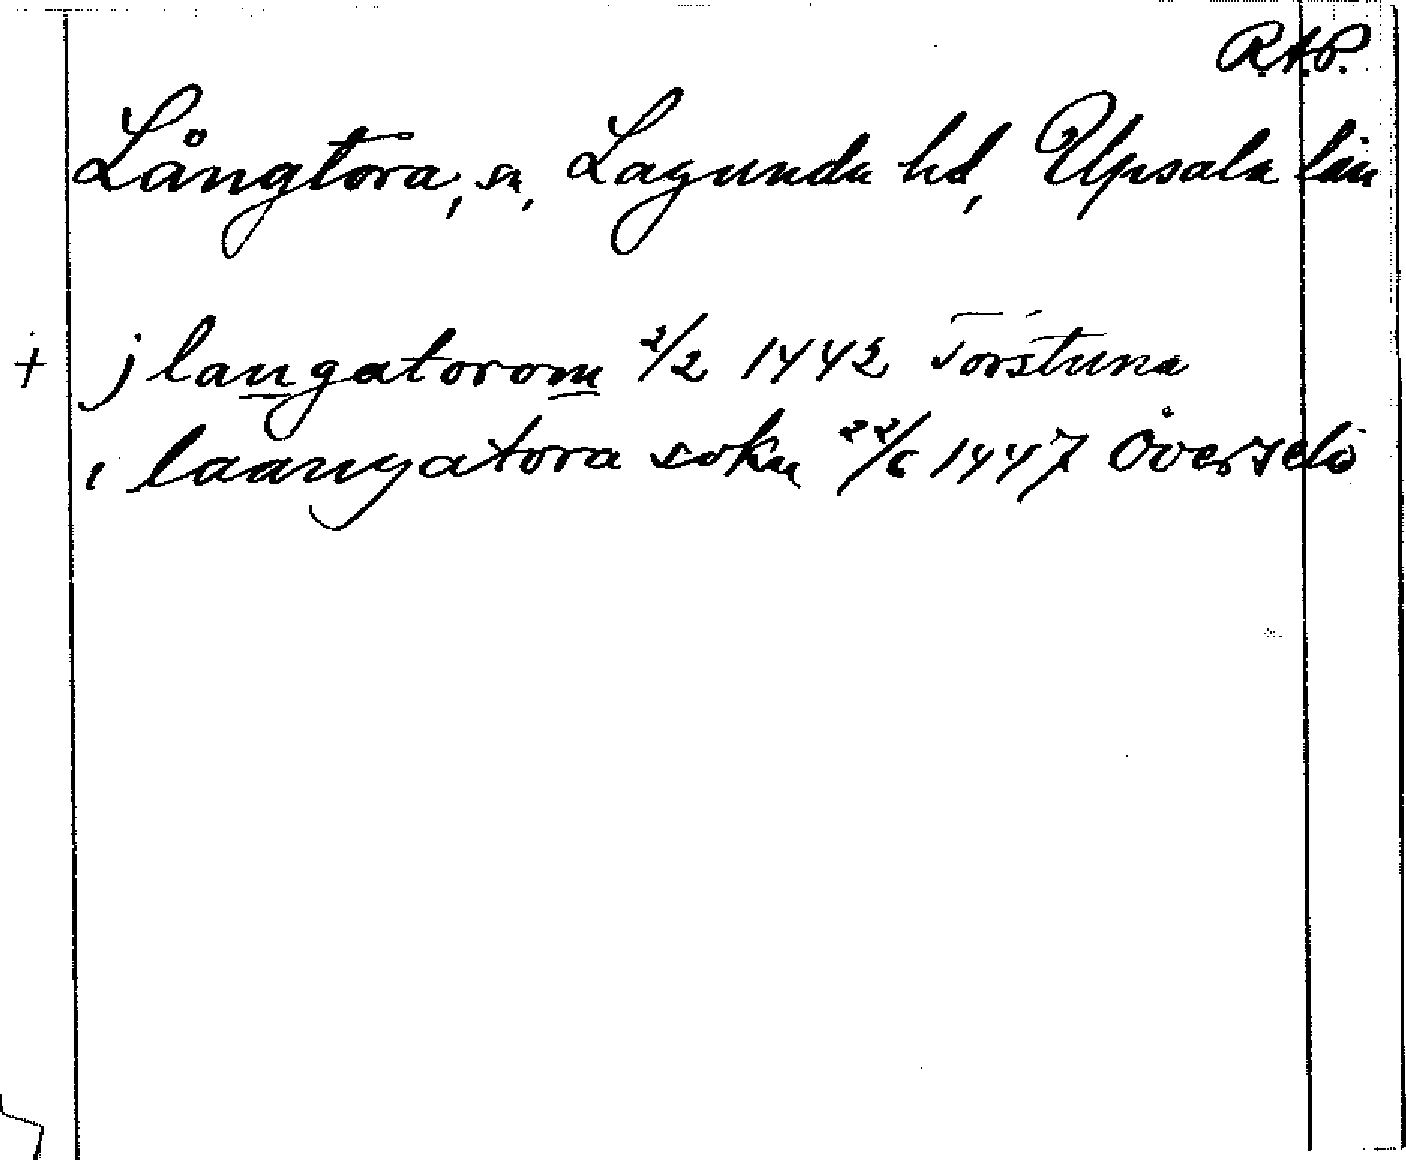 R.A.P.
Långtora, sn, Lagunda hd, Upsala län
+ j langatorom 2/2 1442 Torstuna
i laangatora sokn 22/6 1447 Överselö